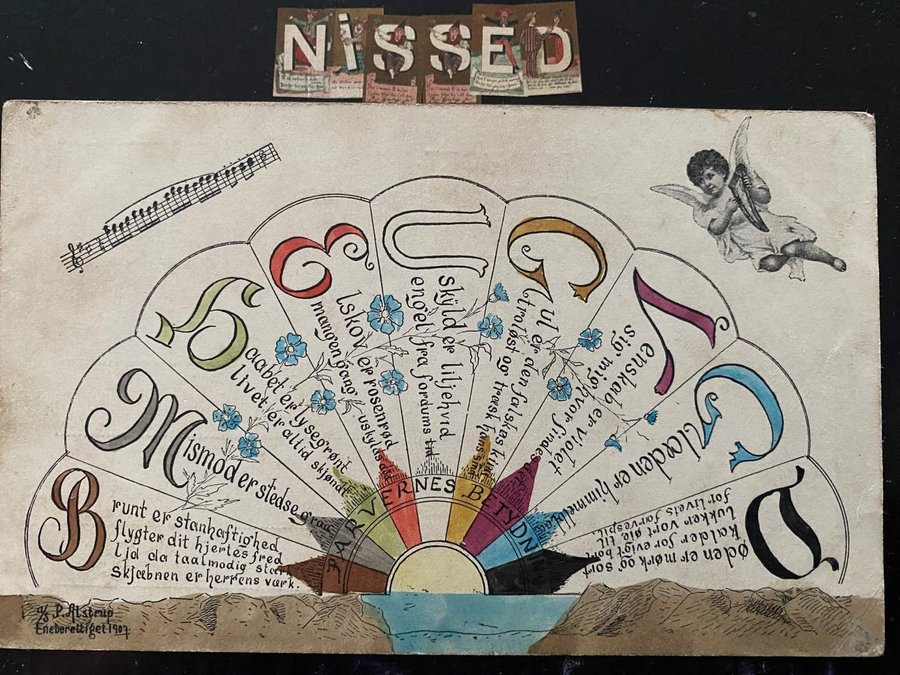 NiSSED
Brunt er stanhaftighed
flygter dit hjertes fred
lid da taalmodig stærk
Skjæbnen er herrens værk.
Mismod er stedse graa
Haabet er lysegrønt
livet er altid skjøndt
Elskov er rosenrød
mangengang uskylds
Uskyld er liljehvid
engel fra fordums tid
Gul er den falskes
troløst og
Venskab er violet
sig mig hvor findes
Glæden er himmelblaa
Døden er mørk og sort
kalder for evigt bort
lukker vort øie til
for livets farvespil
FARVERNES BETYDNING
P. Alstrup
Eneberettiget 1907.